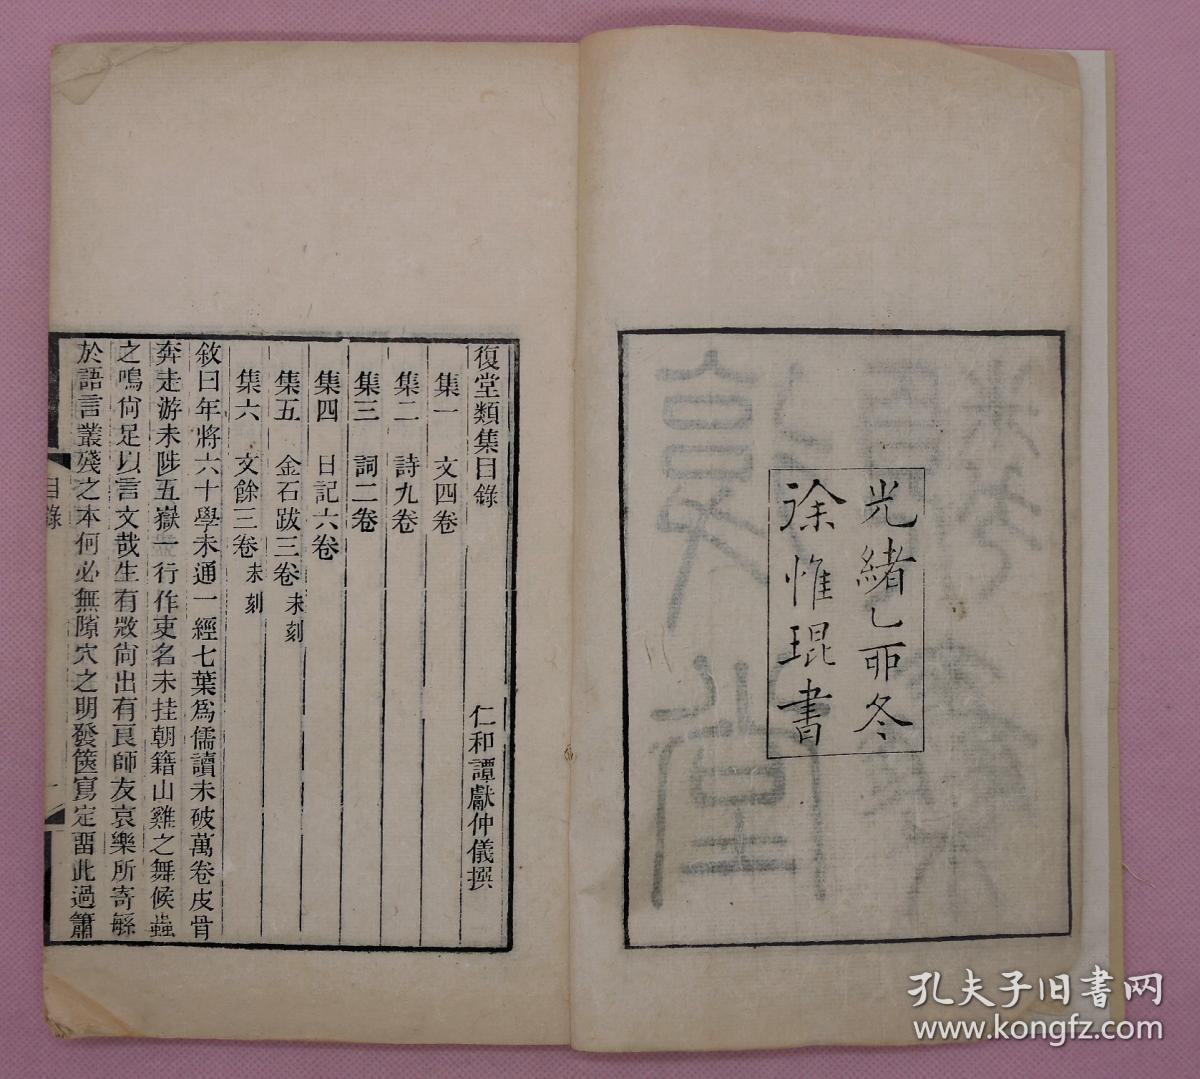 光緒乙丣冬
徐惟琨書
復堂類集目錄 仁和譚獻仲儀撰
集一 文四卷
集二 詩九卷
集三 詞二卷
集四 日記六卷
集五 金石跋三卷未刻
集六 文餘三卷未刻
敘曰年將六十學未通一經七葉爲儒讀未破萬卷皮骨
奔走游未陟五嶽一行作吏名未挂朝籍山雞之舞候蟲
之鳴尙足以言文哉生有尙出有良師友哀樂所寄緜
於語言叢殘之本何必無隙穴之明發篋寫定畱此過簫
目錄
一
孔夫子旧书网
www.kongfz.com